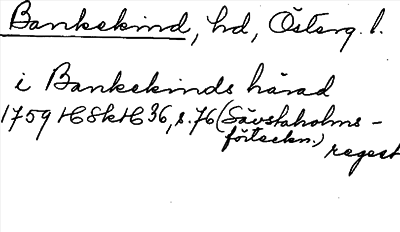 Bankekind, hd, Österg. l.
i Bankekinds härad
1759 HSkH 36, s. 76 (Sävstaholms-
förteckn.) regest